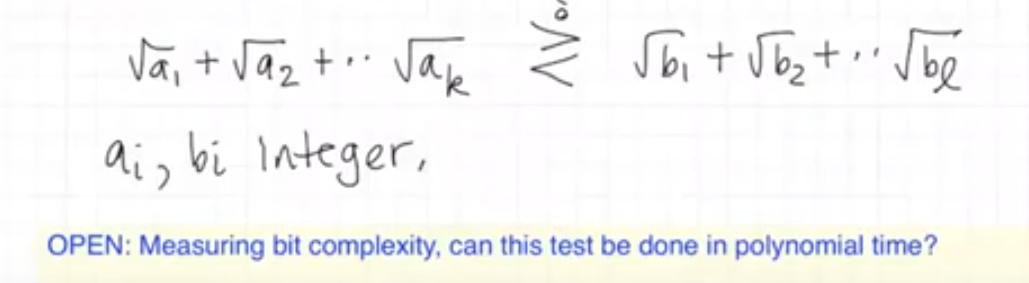 √a₁ + √a₂ + ·· √aₖ ≷ √b₁ + √b₂ + ·· √bₗ
aᵢ, bᵢ integer.
OPEN: Measuring bit complexity, can this test be done in polynomial time?